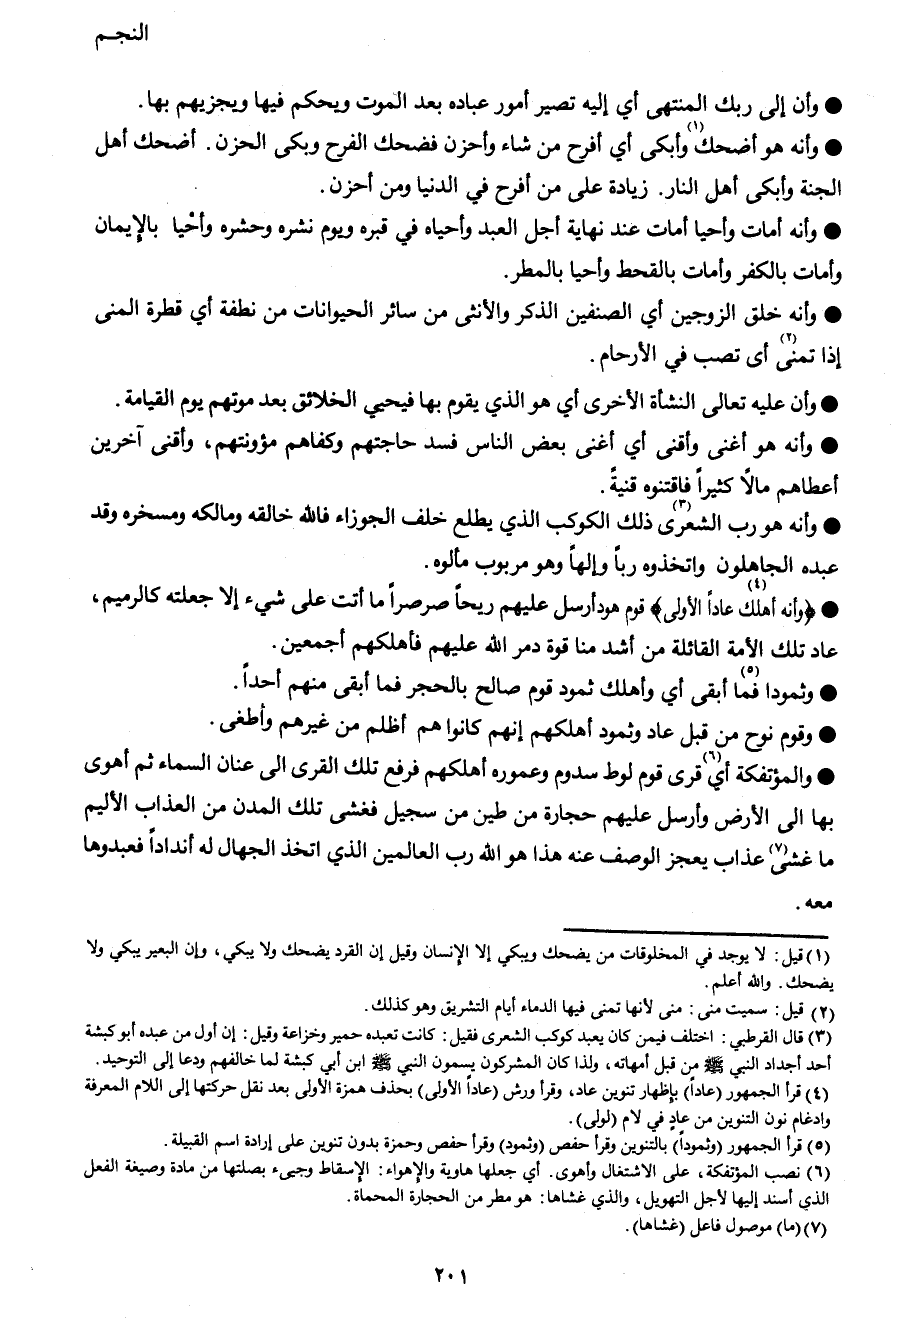 النجـم
● وأن إلى ربك المنتهى أي إليه تصير أمور عباده بعد الموت ويحكم فيها ويجزيهم بها.
● وأنه هو أضحك(١) وأبكى أي أفرح من شاء وأحزن فضحك الفرح وبكى الحزن. أضحك أهل
الجنة وأبكى أهل النار. زيادة على من أفرح في الدنيا ومن أحزن.
● وأنه أمات وأحيا أمات عند نهاية أجل العبد وأحياه في قبره ويوم نشره وحشره وأحْيا بالإيمان
وأمات بالكفر وأمات بالقحط وأحيا بالمطر.
● وأنه خلق الزوجين أي الصنفين الذكر والأنثى من سائر الحيوانات من نطفة أي قطرة المنى
إذا تمنى(٢) أى تصب في الأرحام.
● وأن عليه تعالى النشأة الأخرى أي هو الذي يقوم بها فيحيي الخلائق بعد موتهم يوم القيامة.
● وأنه هو أغنى وأقنى أي أغنى بعض الناس فسد حاجتهم وكفاهم مؤونتهم، وأقنى آخرين
أعطاهم مالًا كثيراً فاقتنوه قنيةً.
● وأنه هو رب الشعرى(٣) ذلك الكوكب الذي يطلع خلف الجوزاء فالله خالقه ومالكه ومسخره وقد
عبده الجاهلون واتخذوه رباً وإلهاً وهو مربوب مألوه.
● ﴿وأنه أهلك عاداً(٤) الأولى﴾ قوم هودأرسل عليهم ريحاً صرصراً ما أتت على شيء إلا جعلته كالرميم،
عاد تلك الأمة القائلة من أشد منا قوة دمر الله عليهم فأهلكهم أجمعين.
● وثمودا(٥) فما أبقى أي وأهلك ثمود قوم صالح بالحجر فما أبقى منهم أحداً.
● وقوم نوح من قبل عاد وثمود أهلكهم إنهم كانوا هم أظلم من غيرهم وأطغى.
● والمؤتفكة(٦) أي قرى قوم لوط سدوم وعموره أهلكهم فرفع تلك القرى الى عنان السماء ثم أهوى
بها الى الأرض وأرسل عليهم حجارة من طين من سجيل فغشى تلك المدن من العذاب الأليم
ما غشى(٧) عذاب يعجز الوصف عنه هذا هو الله رب العالمين الذي اتخذ الجهال له أنداداً فعبدوها
معه.
(١) قيل: لا يوجد في المخلوقات من يضحك ويبكي إلا الإنسان وقيل إن القرد يضحك ولا يبكي، وإن البعير يبكي ولا
يضحك. والله أعلم.
(٢) قيل: سميت منى: منى لأنها تمنى فيها الدماء أيام التشريق وهو كذلك.
(٣) قال القرطبي: اختلف فيمن كان يعبد كوكب الشعرى فقيل: كانت تعبده حمير وخزاعة وقيل: إن أول من عبده أبو كبشة
أحد أجداد النبي ﷺ من قبل أمهاته، ولذا كان المشركون يسمون النبي ﷺ ابن أبي كبشة لما خالفهم ودعا إلى التوحيد.
(٤) قرأ الجمهور (عاداً) بإظهار تنوين عاد، وقرأ ورش (عاداً الأولى) بحذف همزة الأولى بعد نقل حركتها إلى اللام المعرفة
وادغام نون التنوين من عادٍ في لام (لولى).
(٥) قرأ الجمهور (وثموداً) بالتنوين وقرأ حفص (وثمود) وقرأ حفص وحمزة بدون تنوين على إرادة اسم القبيلة.
(٦) نصب المؤتفكة، على الاشتغال وأهوى. أي جعلها هاوية والإهواء: الإسقاط وجيء بصلتها من مادة وصيغة الفعل
الذي أسند إليها لأجل التهويل، والذي غشاها: هو مطر من الحجارة المحماة.
(٧) (ما) موصول فاعل (غشاها).
٢٠١